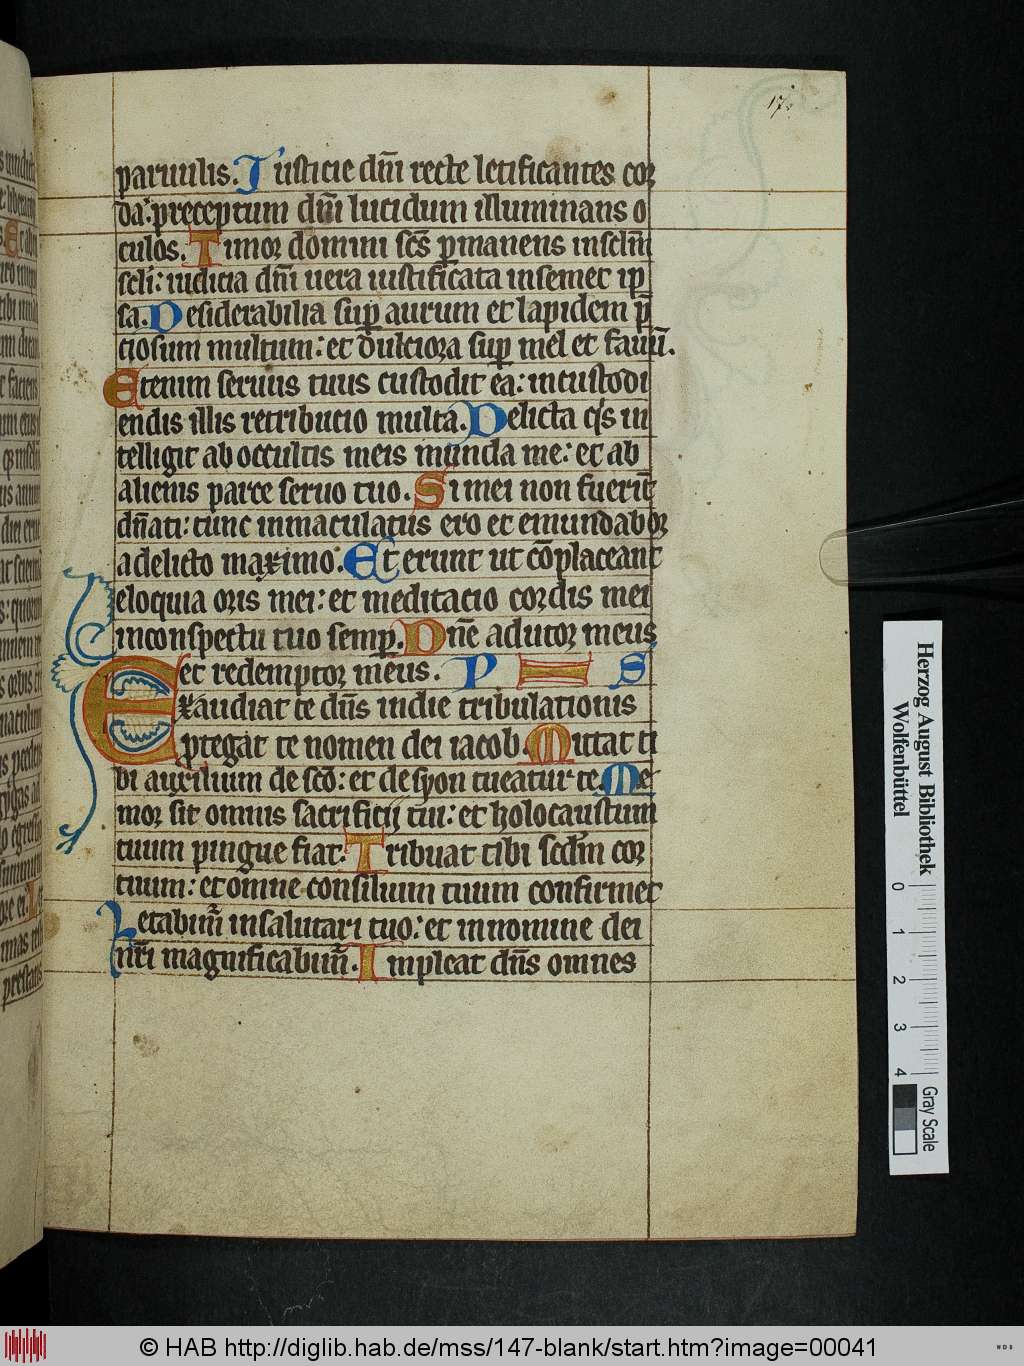 17.
paruulis. Iusticie dn̄i recte letificantes cor
da: preceptum dn̄i lucidum illuminans o
culos. Timor domini sc̄s p̄manens in sclm̄
scli: iudicia dn̄i uera iustificata in semet ip
sa. Desiderabilia sup aurum et lapidem p̄
ciosum multum: et dulciora sup mel et fauū.
Etenim seruus tuus custodit ea: in custodi
endis illis retribucio multa. Delicta q̇s in
telligit ab occultis meis munda me: et ab
alienis parce seruo tuo. Si mei non fuerīt
dn̄ati: tunc inmaculatus ero et emundabor
a delicto maximo. Et erunt ut cōplaceant
eloquia oris mei: et meditacio cordis mei
in conspectu tuo semp. Dn̄e adiutor meus
et redemptor meus. P S
Exaudiat te dn̄s in die tribulationis
ptegat te nomen dei iacob. Mittat ti
bi auxilium de scō: et de syon tueatur te. Me
mor sit omnis sacrificij tui: et holocaustum
tuum pingue fiat. Tribuat tibi scdm̄ cor
tuum: et omne consilium tuum confirmet
Letabimr̄ in salutari tuo: et in nomine dei
nr̄i magnificabimr̄. Impleat dn̄s omnes
Herzog August Bibliothek
Wolfenbüttel
0 1 2 3 4
Gray Scale
© HAB http://diglib.hab.de/mss/147-blank/start.htm?image=00041